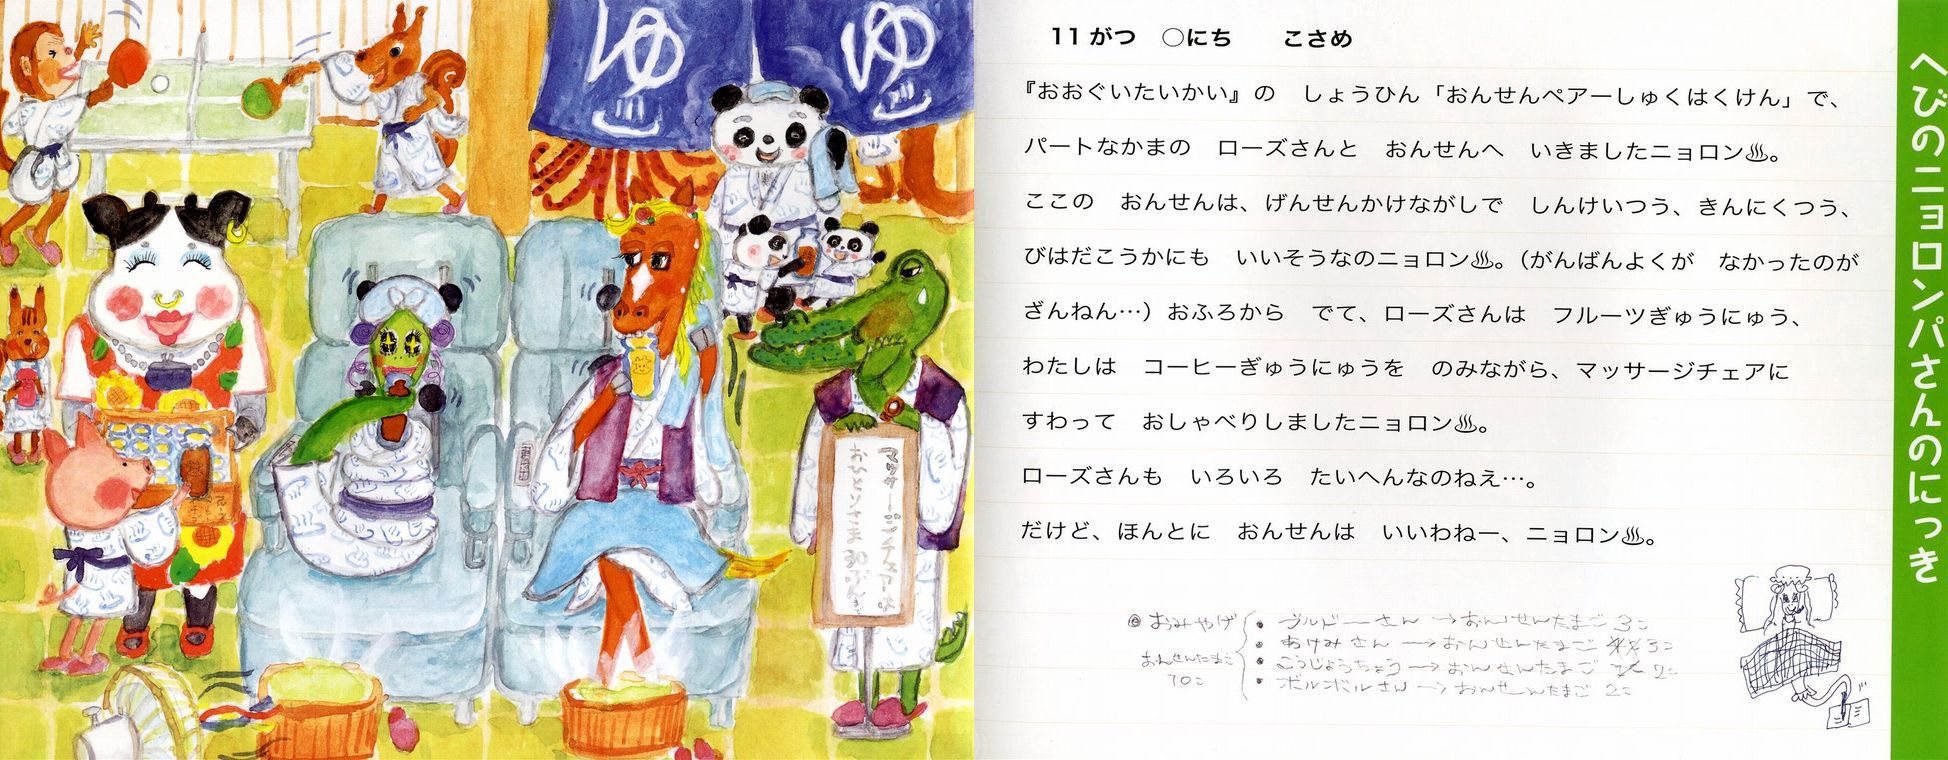 ゆ
ゆ
マッサージチェアは
おひとりさま30ぷんまで
11がつ　○にち　　こさめ
『おおぐいたいかい』の　しょうひん「おんせんペアーしゅくはくけん」で、
パートなかまの　ローズさんと　おんせんへ　いきましたニョロン♨。
ここの　おんせんは、げんせんかけながしで　しんけいつう、きんにくつう、
びはだこうかにも　いいそうなのニョロン♨。（がんばんよくが　なかったのが
ざんねん…）おふろから　でて、ローズさんは　フルーツぎゅうにゅう、
わたしは　コーヒーぎゅうにゅうを　のみながら、マッサージチェアに
すわって　おしゃべりしましたニョロン♨。
ローズさんも　いろいろ　たいへんなのねえ…。
だけど、ほんとに　おんせんは　いいわねー、ニョロン♨。
◎おみやげ
おんせんたまご
10こ
・ブルドーさん→おんせんたまご 3こ
・あけみさん→おんせんたまご 3こ
・こうじょうちょう→おんせんたまご 2こ
・ボルボルさん→おんせんたまご 2こ
へびのニョロンパさんのにっき